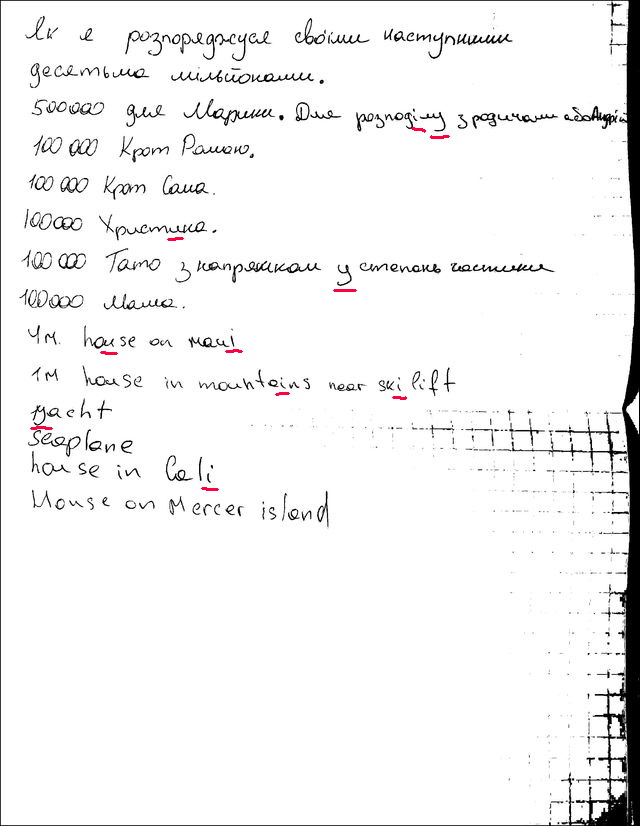 Як я розпоряджуся своїми наступними
десятьма мільйонами.
500000 для Марини. Для розподілу з родичами або Андрій
100 000 Крот Рамаю.
100 000 Крот Саша.
100000 Христина.
100 000 Тато з напряжком у степень частики
100000 Мама.
4м. house on маui
1м house in mountains near ski lift
yacht
Seaplane
house in Cali
House on Mercer island